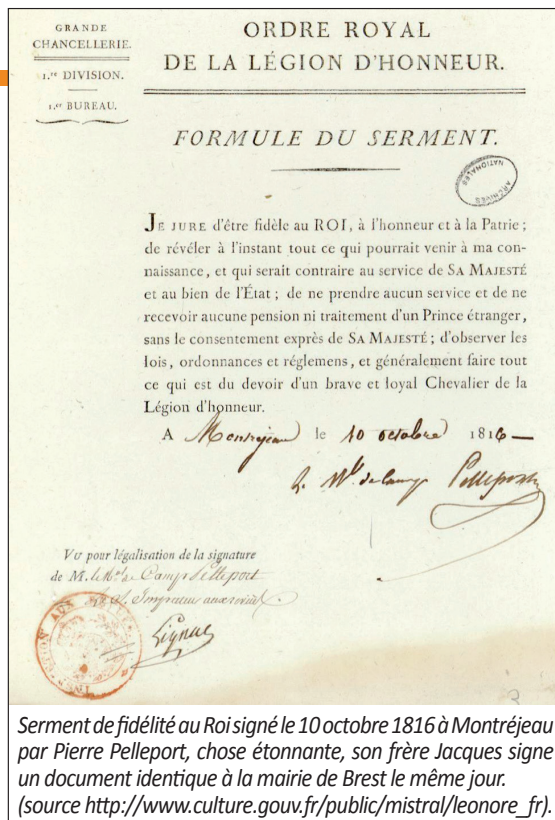 GRANDE
CHANCELLERIE.
1.re DIVISION.
1.er BUREAU.
ORDRE ROYAL
DE LA LÉGION D'HONNEUR.
FORMULE DU SERMENT.
ARCHIVES
NATIONALES
JE JURE d'être fidèle au ROI, à l'honneur et à la Patrie ;
de révéler à l'instant tout ce qui pourrait venir à ma con-
naissance, et qui serait contraire au service de SA MAJESTÉ
et au bien de l'État ; de ne prendre aucun service et de ne
recevoir aucune pension ni traitement d'un Prince étranger,
sans le consentement exprès de SA MAJESTÉ ; d'observer les
lois, ordonnances et réglemens, et généralement faire tout
ce qui est du devoir d'un brave et loyal Chevalier de la
Légion d'honneur.
A Montrejeau le 10 octobre 1816 —
de Camp Pelleport
Vu pour légalisation de la signature
de M. de Camp Pelleport
Lignac
Serment de fidélité au Roi signé le 10 octobre 1816 à Montréjeau
par Pierre Pelleport, chose étonnante, son frère Jacques signe
un document identique à la mairie de Brest le même jour.
(source http://www.culture.gouv.fr/public/mistral/leonore_fr).